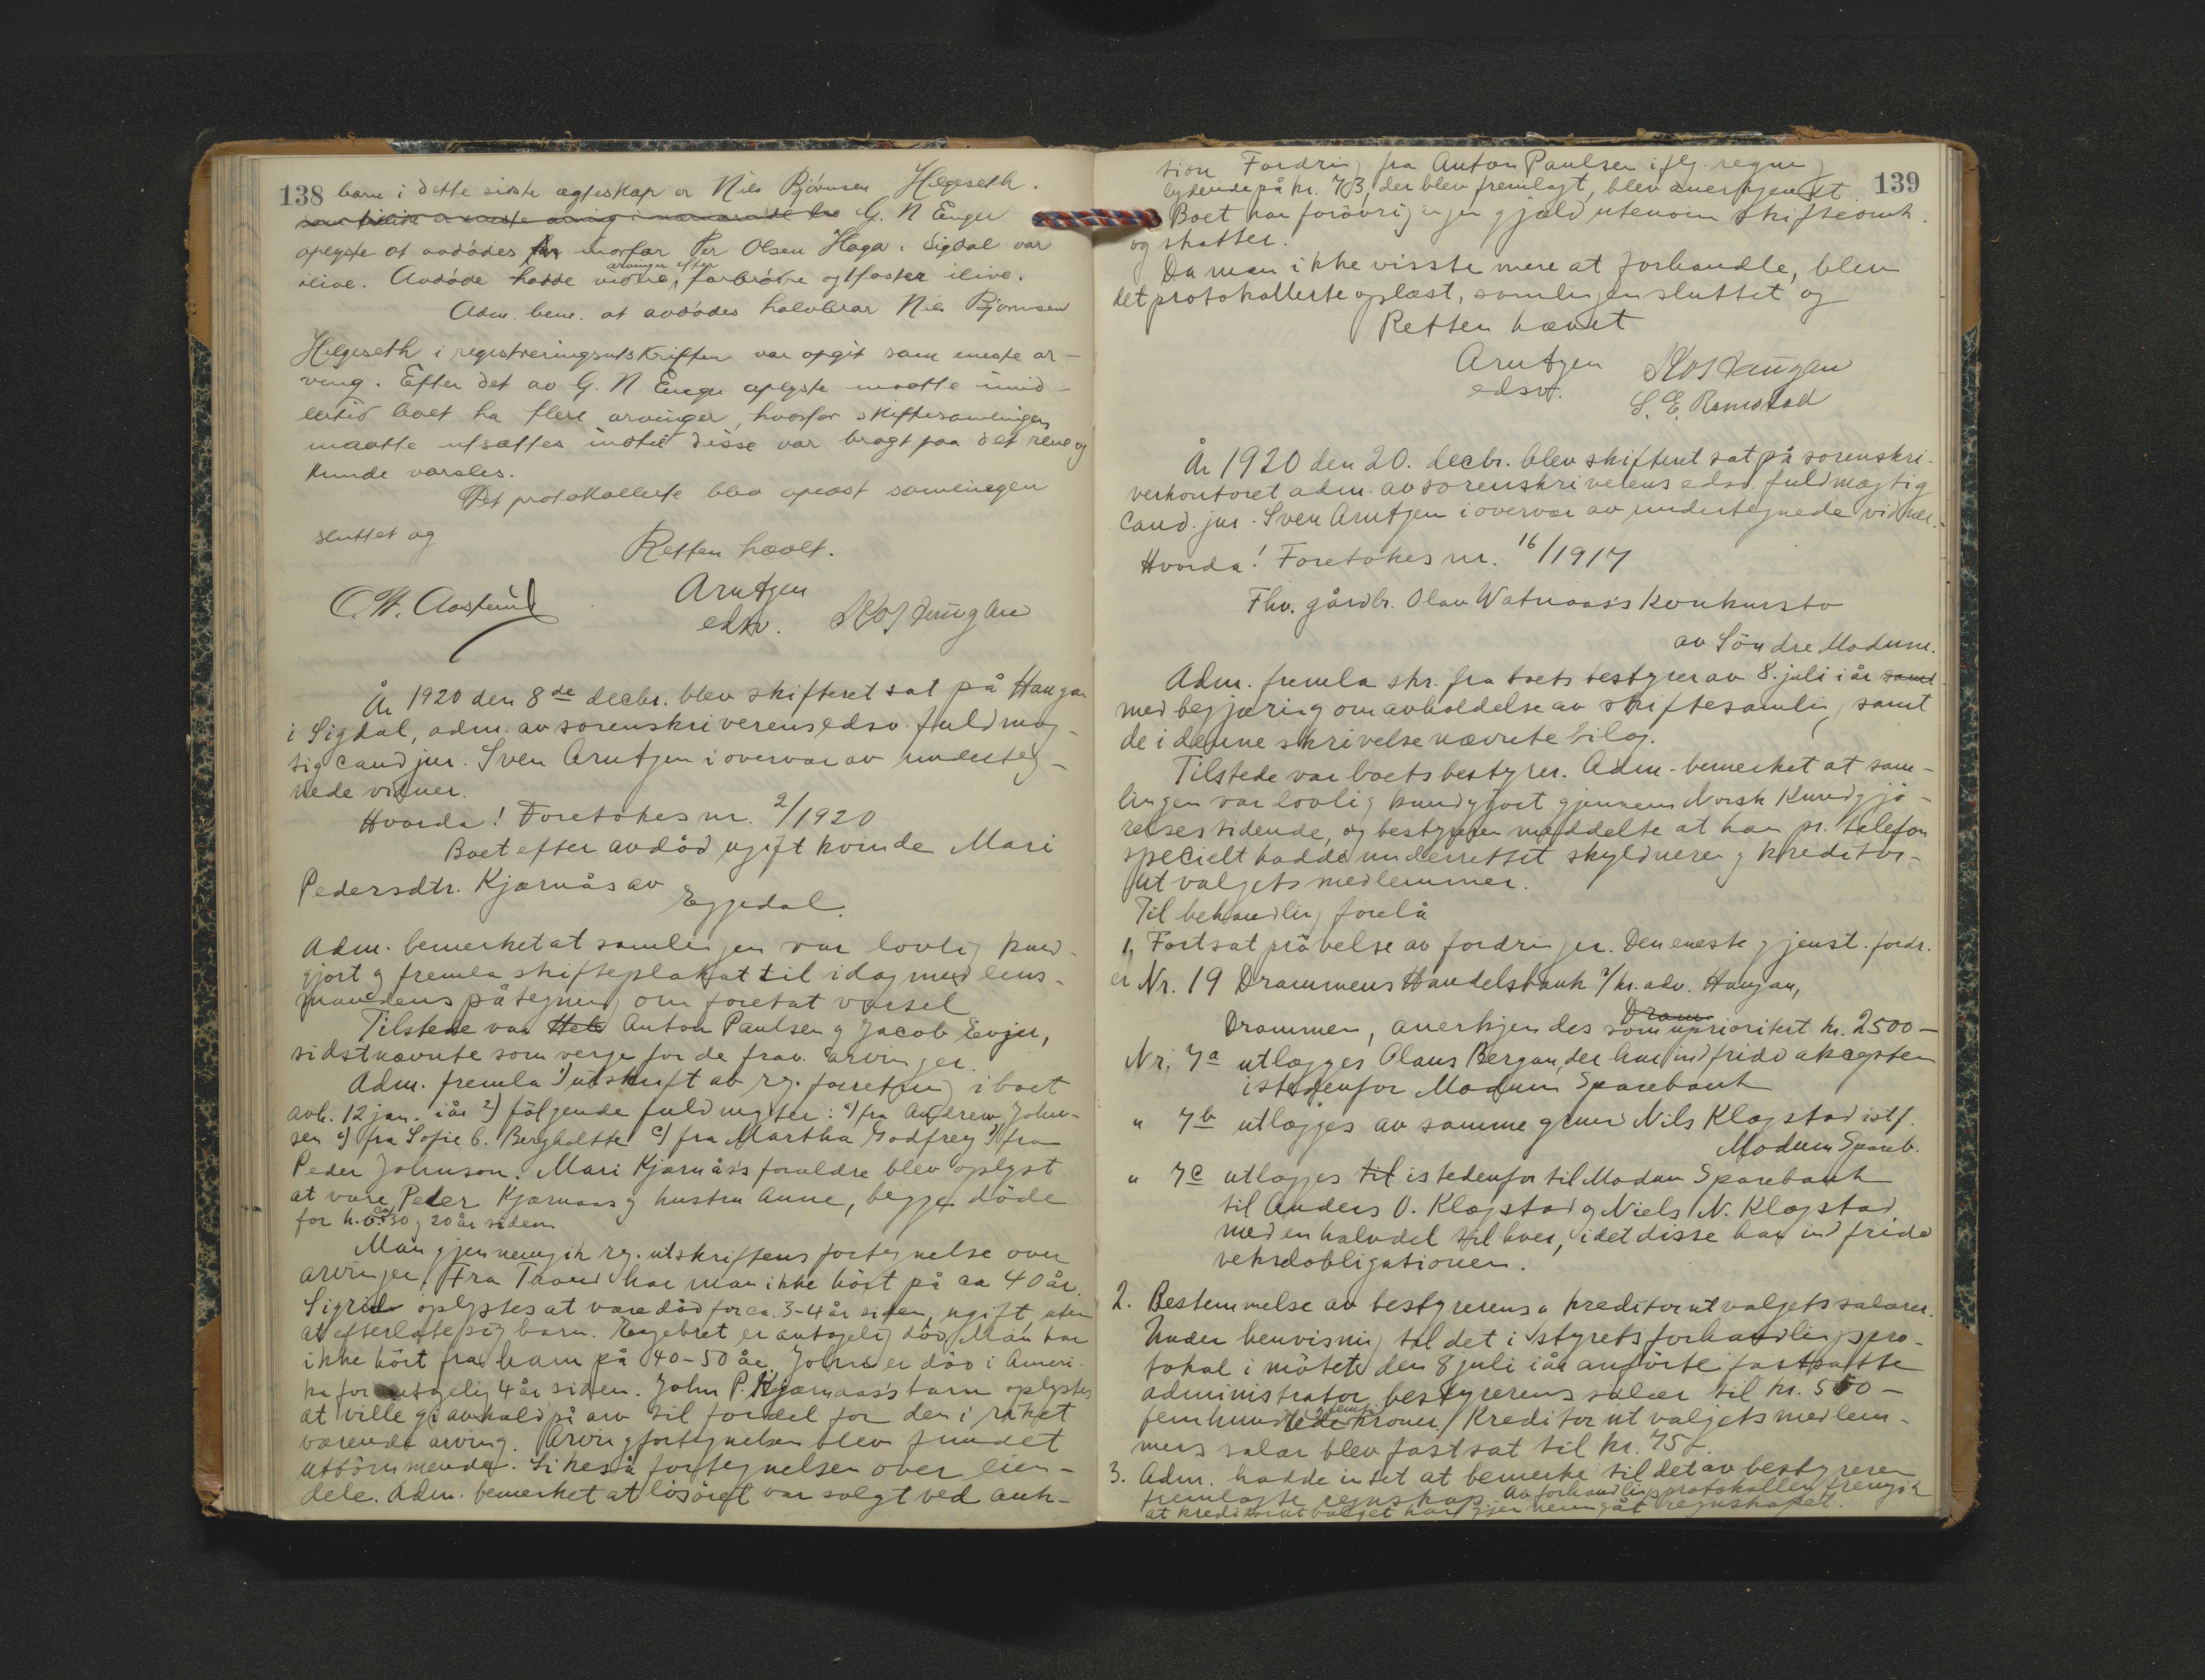 138
barn i dette siste ægteskap er Nils Bjørnsen Helgeseth.
G. N Enger
oplyste at avdødes morfar Per Olsen Haga i Sigdal var
ilive. Avdøde hadde videre arvinger efter farbrødre og 1 faster ilive.
Adm. bem. at avdødes halvbror Nils Bjørnsen
Helgeseth i registreringsutskriften var opgit som eneste ar-
ving. Efter det av G. N. Enger oplyste maatte imid-
lertid boet ha flere arvinger, hvorfor skiftesamlingen
maatte utsættes indtil disse var bragt paa det rene og
kunde varsles.
Det protokollerte blev oplæst samlingen
sluttet og
Retten hævet.
Arntzen
edsv.
År 1920 den 8de decbr. blev skifteret sat på Haugan
i Sigdal, adm. av sorenskriverens edsv. fuldmæg-
tig cand jur. Sven Arntzen i overvær av underteg-
nede vidner.
Hvorda! Foretokes nr. 2/1920
Boet efter avdød ugift kvinde Mari
Pedersdtr. Kjærnås av
Eggedal.
Adm. bemerket at samlingen var lovlig kund-
gjort og fremla skifteplakat til idag med lens-
mandens påtegning om foretat varsel
Tilstede var Anton Paulsen og Jacob Evju,
sidstnævnte som verge for de frav. arvinger.
Adm. fremla 1) utskrift av rg. forretning i boet
avh. 12 jan. iår 2) følgende fuldmgter: a) fra Andrew John-
sen b) fra Sofie C. Bergholtte c) fra Martha Godfrey d) fra
Peder Johnson. Mari Kjærnås's forældre blev oplyst
at være Peder Kjærnaas og hustru Anne, begge døde
for h.v. ca 30 og 20 år siden.
Man gjennemgik rg. utskriftens fortegnelse over
arvinger. Fra Thord har man ikke hört på ca 40 år.
Sigrid oplystes at være död for ca. 3-4 år siden, ugift, uten
at efterlate sig barn. Engebret er antagelig död. Man har
ikke hört fra ham på 40-50 år. John er död i Ameri-
ka for antagelig 4 år siden. John P. Kjærnaas's barn oplystes
at ville gi avkald på arv til fordel for den i riket
værende arving. Arvingfortegnelsen blev fundet
uttömmende. Likeså fortegnelsen over eien-
dele. Adm. bemerket at lösöret var solgt ved auk-
139
sion Fordring fra Anton Paulsen iflg. regning
lydende på kr. 73, der blev fremlagt, blev anerkjendt
Boet har forövrig ingen gjæld utenom skifteomk.
og skatter.
Da man ikke visste mere at forhandle, blev
det protokollerte oplæst, samlingen sluttet og
Retten hævet
Arntzen
edsv.
S. E. Ramstad
År 1920 den 20. decbr. blev skifteret sat på sorenskri-
verkontoret adm. av sorenskriverens edsv. fuldmægtig
cand. jur. Sven Arntzen i overvær av undertegnede vidner.
Hvorda! Foretokes nr. 16/1917
Fhv. gårdbr. Olav Watnaas's konkursbo
av Söndre Modum.
Adm. fremla skr. fra boets bestyrer av 8. juli i år samt
med begjæring om avholdelse av skiftesamling, samt
de i denne skrivelse nævnte bilag.
Tilstede var boets bestyrer. Adm. bemerket at sam-
lingen var lovlig kundgjort gjennem Norsk Kundgjö-
relsestidende, og bestyreren meddelte at han pr. telefon
specielt hadde underrettet skyldneren og kreditor-
utvalgets medlemmer.
Til behandling forelå
1, Fortsat prövelse av fordringer. Den eneste gjenst. fordr.
er Nr. 19 Drammens Handelsbank v/ hr. adv. Haugan,
Drammen, anerkjendes Dram som uprioritert kr. 2500-
Nr. 7a utlægges Olaus Bergan, der har indfridd aksepten
istedenfor Modum Sparebank
" 7b utlægges av samme grund Nils Klopstad istf.
Modum Spareb.
" 7c utlægges til istedenfor til Modum Sparebank
til Anders O. Klopstad og Niels N. Klopstad
med en halvdel til hver, idet disse har indfridd
vekselobligationen.
2. Bestemmelse av bestyrerens og kreditorutvalgets salærer.
Under henvisning til det i styrets forhandlingspro-
tokol i mötet den 8 juli i år anförte fastsatte
administrator bestyrerens salær til kr. 550-
femhundrede femti kroner. Kreditorutvalgets medlem-
mers salær blev fastsat til kr. 75-.
3. Adm. hadde intet at bemerke til det av bestyreren
fremlagte regnskap. Av forhandlingsprotokollen fremgik
at kreditorutvalget har gjennemgåt regnskapet.